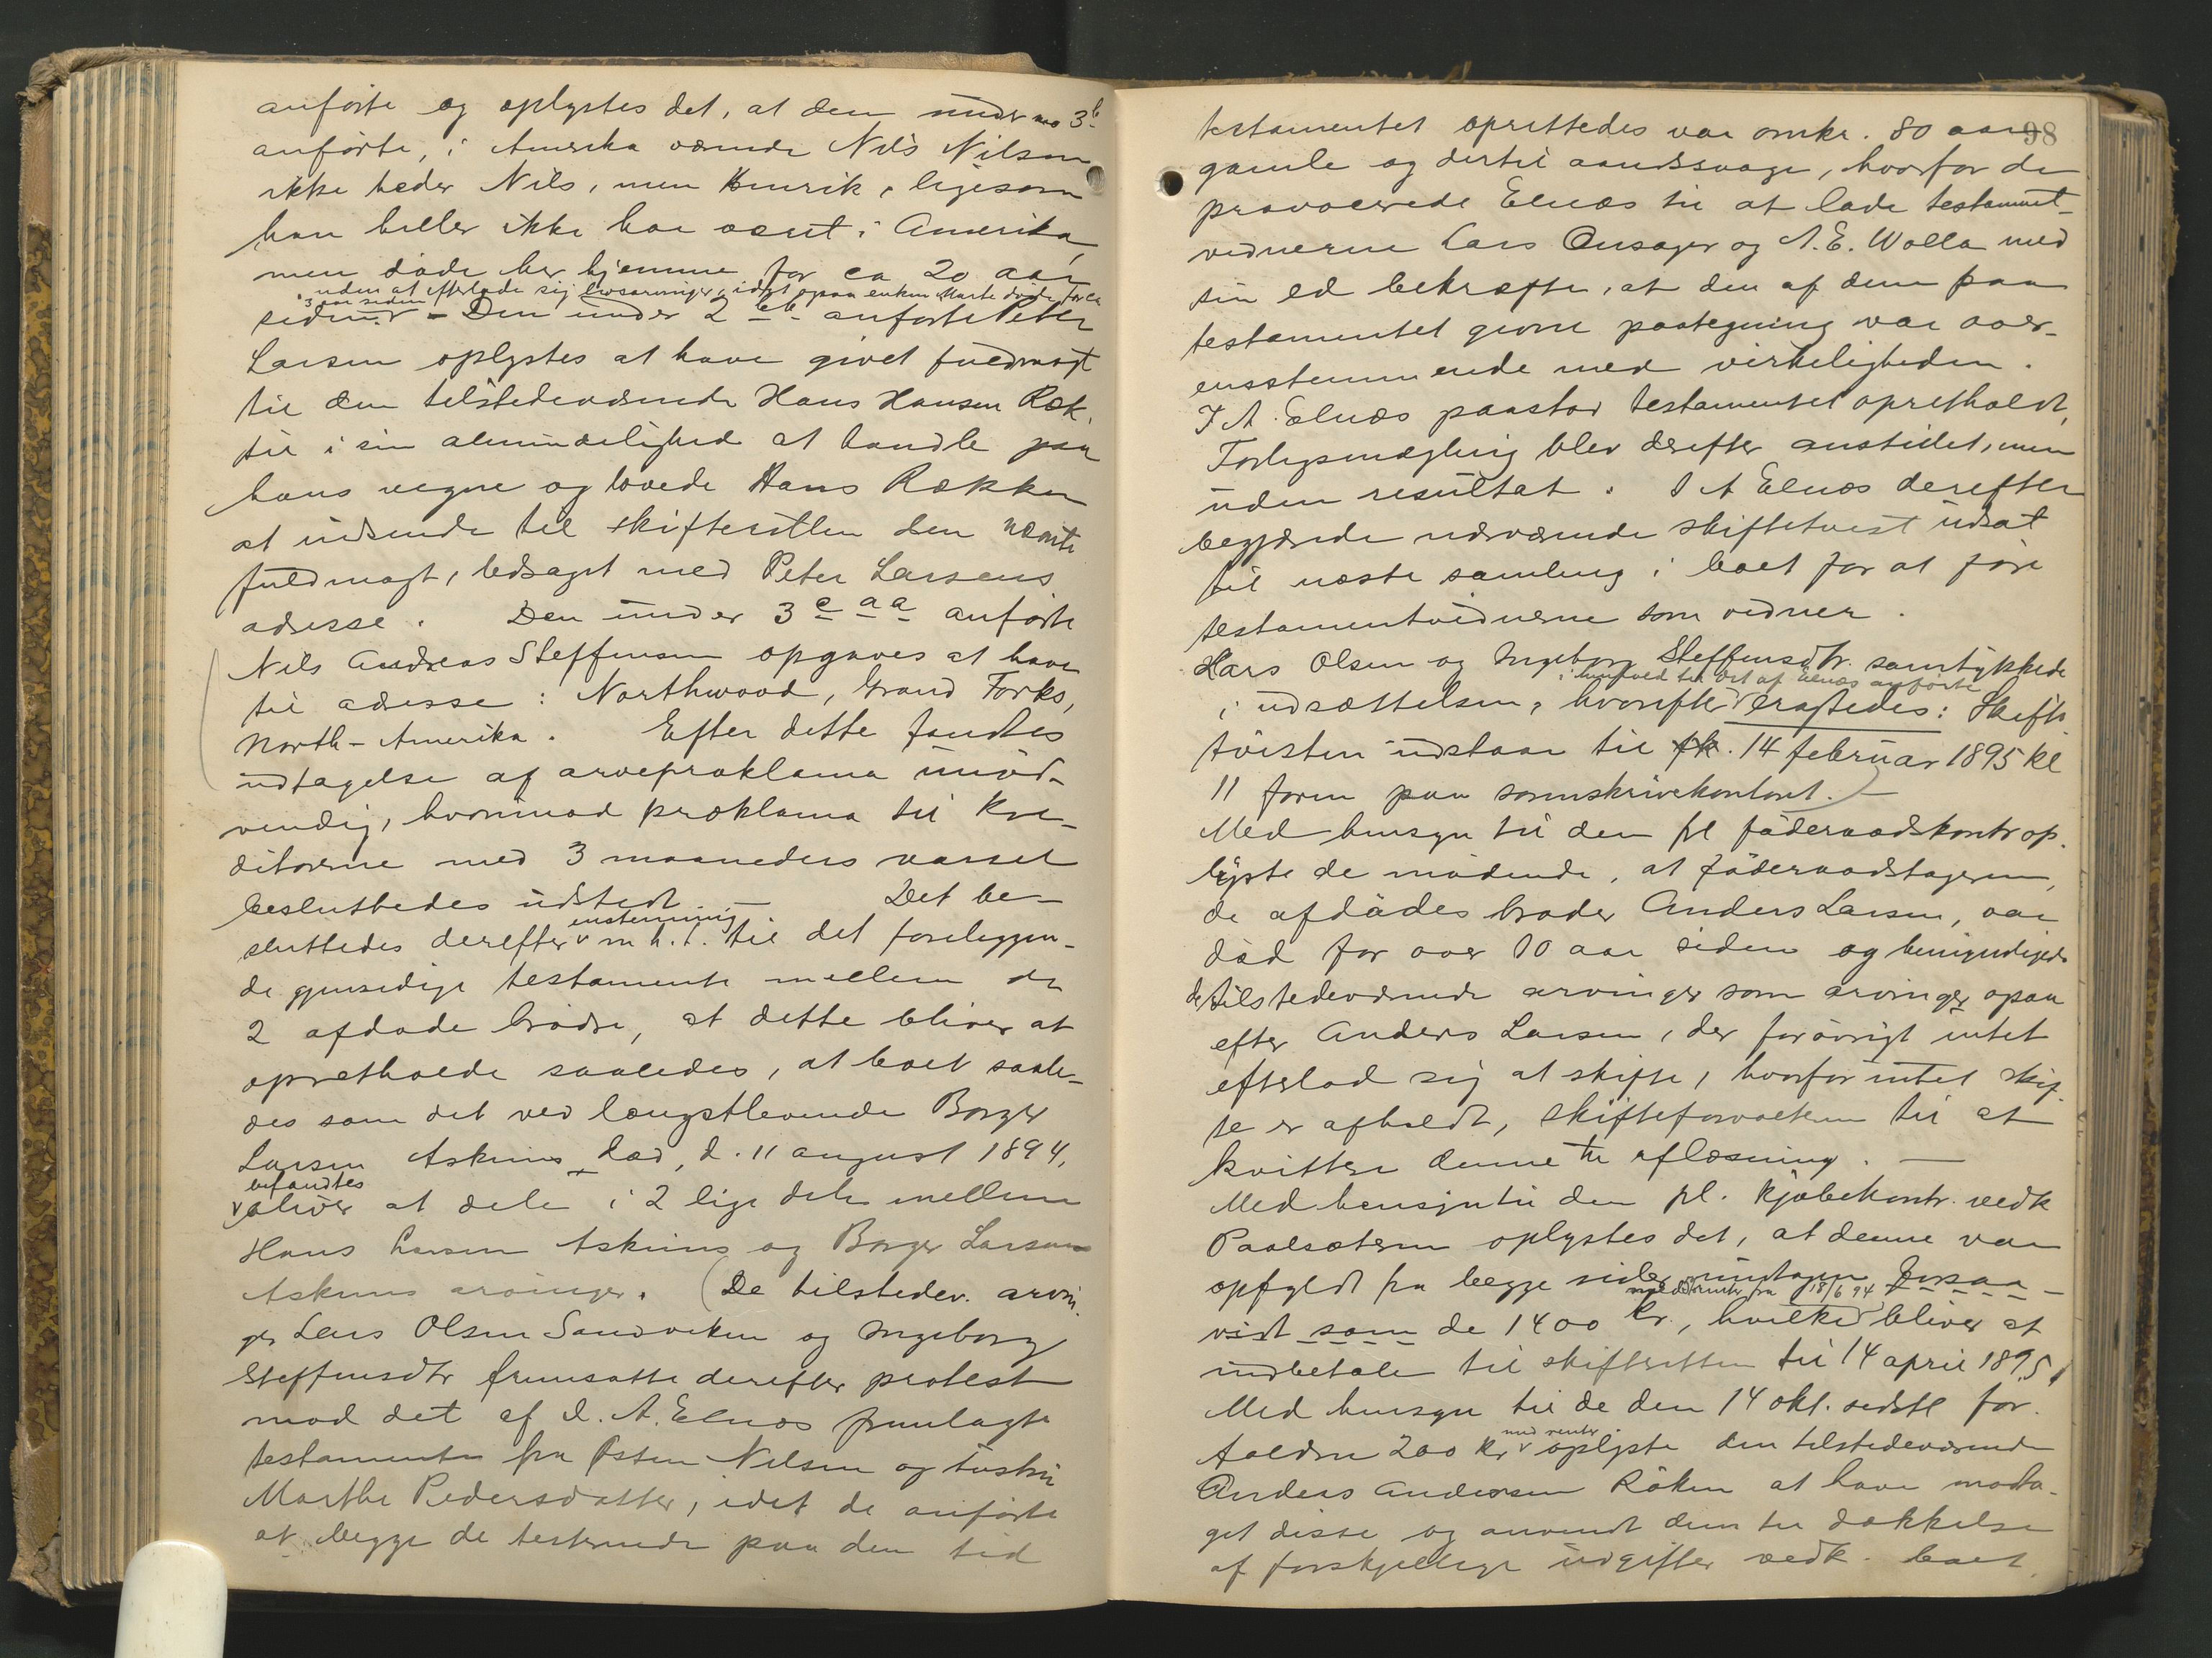 anførte og oplystes det, at den under no 3 b
anførte, i Amerika værende Nils Nilsen
ikke heder Nils, men Henrik, ligesom
han heller ikke har været i Amerika,
men døde her hjemme for ca 20 aar
uden at efterlade sig livsarvinger, idet ogsaa enken Marte døde for ca
3 aar siden
siden. - Den under 2 anførte Peter
Larsen oplystes at have givet fuldmagt
til den tilstedeværende Hans Hansen Røk.
til i sin almindelighed at handle paa
hans vegne og lovede Hans Røkken
at indsende til skifteretten den nævnte
fuldmagt, ledsaget med Peter Larsens
adresse. Den under 3 c a a anførte
Nils Andreas Steffensen opgaves at have
til adresse: Northwood, Grand Forks,
North-Amerika. Efter dette fandtes
udtagelse af arveproklama unød-
vendig, hvorimod proklama til kre-
ditorerne med 3 maaneders varsel
besluttedes udstedt. — Det be-
enstemmig
sluttedes derefter m. h. t. til det foreliggen-
de gjensidige testamente mellem de
2 afdøde brødre, at dette bliver at
opretholde saaledes, at boet saale-
des som det ved længstlevende Borger
Larsen Askims død, d. 11 august 1894,
befandtes
bliver at dele i 2 lige dele mellem
Hans Larsen Askims og Borger Larsens
Askims arvinger. (De tilstedev. arvin-
ger Lars Olsen Sandviken og Ingeborg
Steffensdtr fremsatte derefter protest
mod det af I. A. Elnæs fremlagte
testamente fra Østen Nilsen og hustru
Marthe Pedersdatter, idet de anførte
at begge de testerende paa den tid
98
testamentet oprettedes var omkr. 80 aar
gamle og dertil aandssvage, hvorfor de
provocerede Elnæs til at lade testament-
vidnerne Lars Onsager og A. E. Wolla med
sin ed bekræfte, at den af dem paa
testamentet givne paategning var over-
ensstemmende med virkeligheden.
I A. Elnæs paastod testamentet opretholdt,
Forligsmægling blev derefter anstillet, men
uden resultat. I A Elnæs derefter
begjærede nærværende skiftetvist udsat
til næste samling i boet for at føre
testamentvidnerne som vidner.
Lars Olsen og Ingeborg Steffensdtr. samtykkede
i henhold til det af Elnæs anførte
i udsættelsen, hvorefter eragtedes: Skifte
tvisten udstaar til 14 februar 1895 kl
11 form paa sorenskriverkontoret.) —
Med hensyn til den fl føderaadskontr op-
lyste de mødende, at føderaadstageren,
de afdødes broder Anders Larsen, var
død for over 10 aar siden og bemyndigede
de tilstedeværende arvinger som arvinger ogsaa
efter Anders Larsen, der forøvrigt intet
efterlod sig at skifte, hvorfor intet skif-
te er afholdt, skifteforvalteren til at
kvittere denne til aflæsning. —
Med hensyn til den fl. kjøbekontr. vedk
Paalsæteren oplystes det, at denne var
opfyldt fra begge sider undtagen forsaa-
med renter fra 18/6 94
vidt som de 1400 kr., hvilke bliver at
indbetale til skifteretten til 14 april 1895.
Med hensyn til de den 14 okt. sidstl for-
med renter
faldne 200 kr oplyste den tilstedeværende
Anders Andersen Røken at have modta-
get disse og anvendt dem til dækkelse
af forskjellige udgifter vedk. boet.